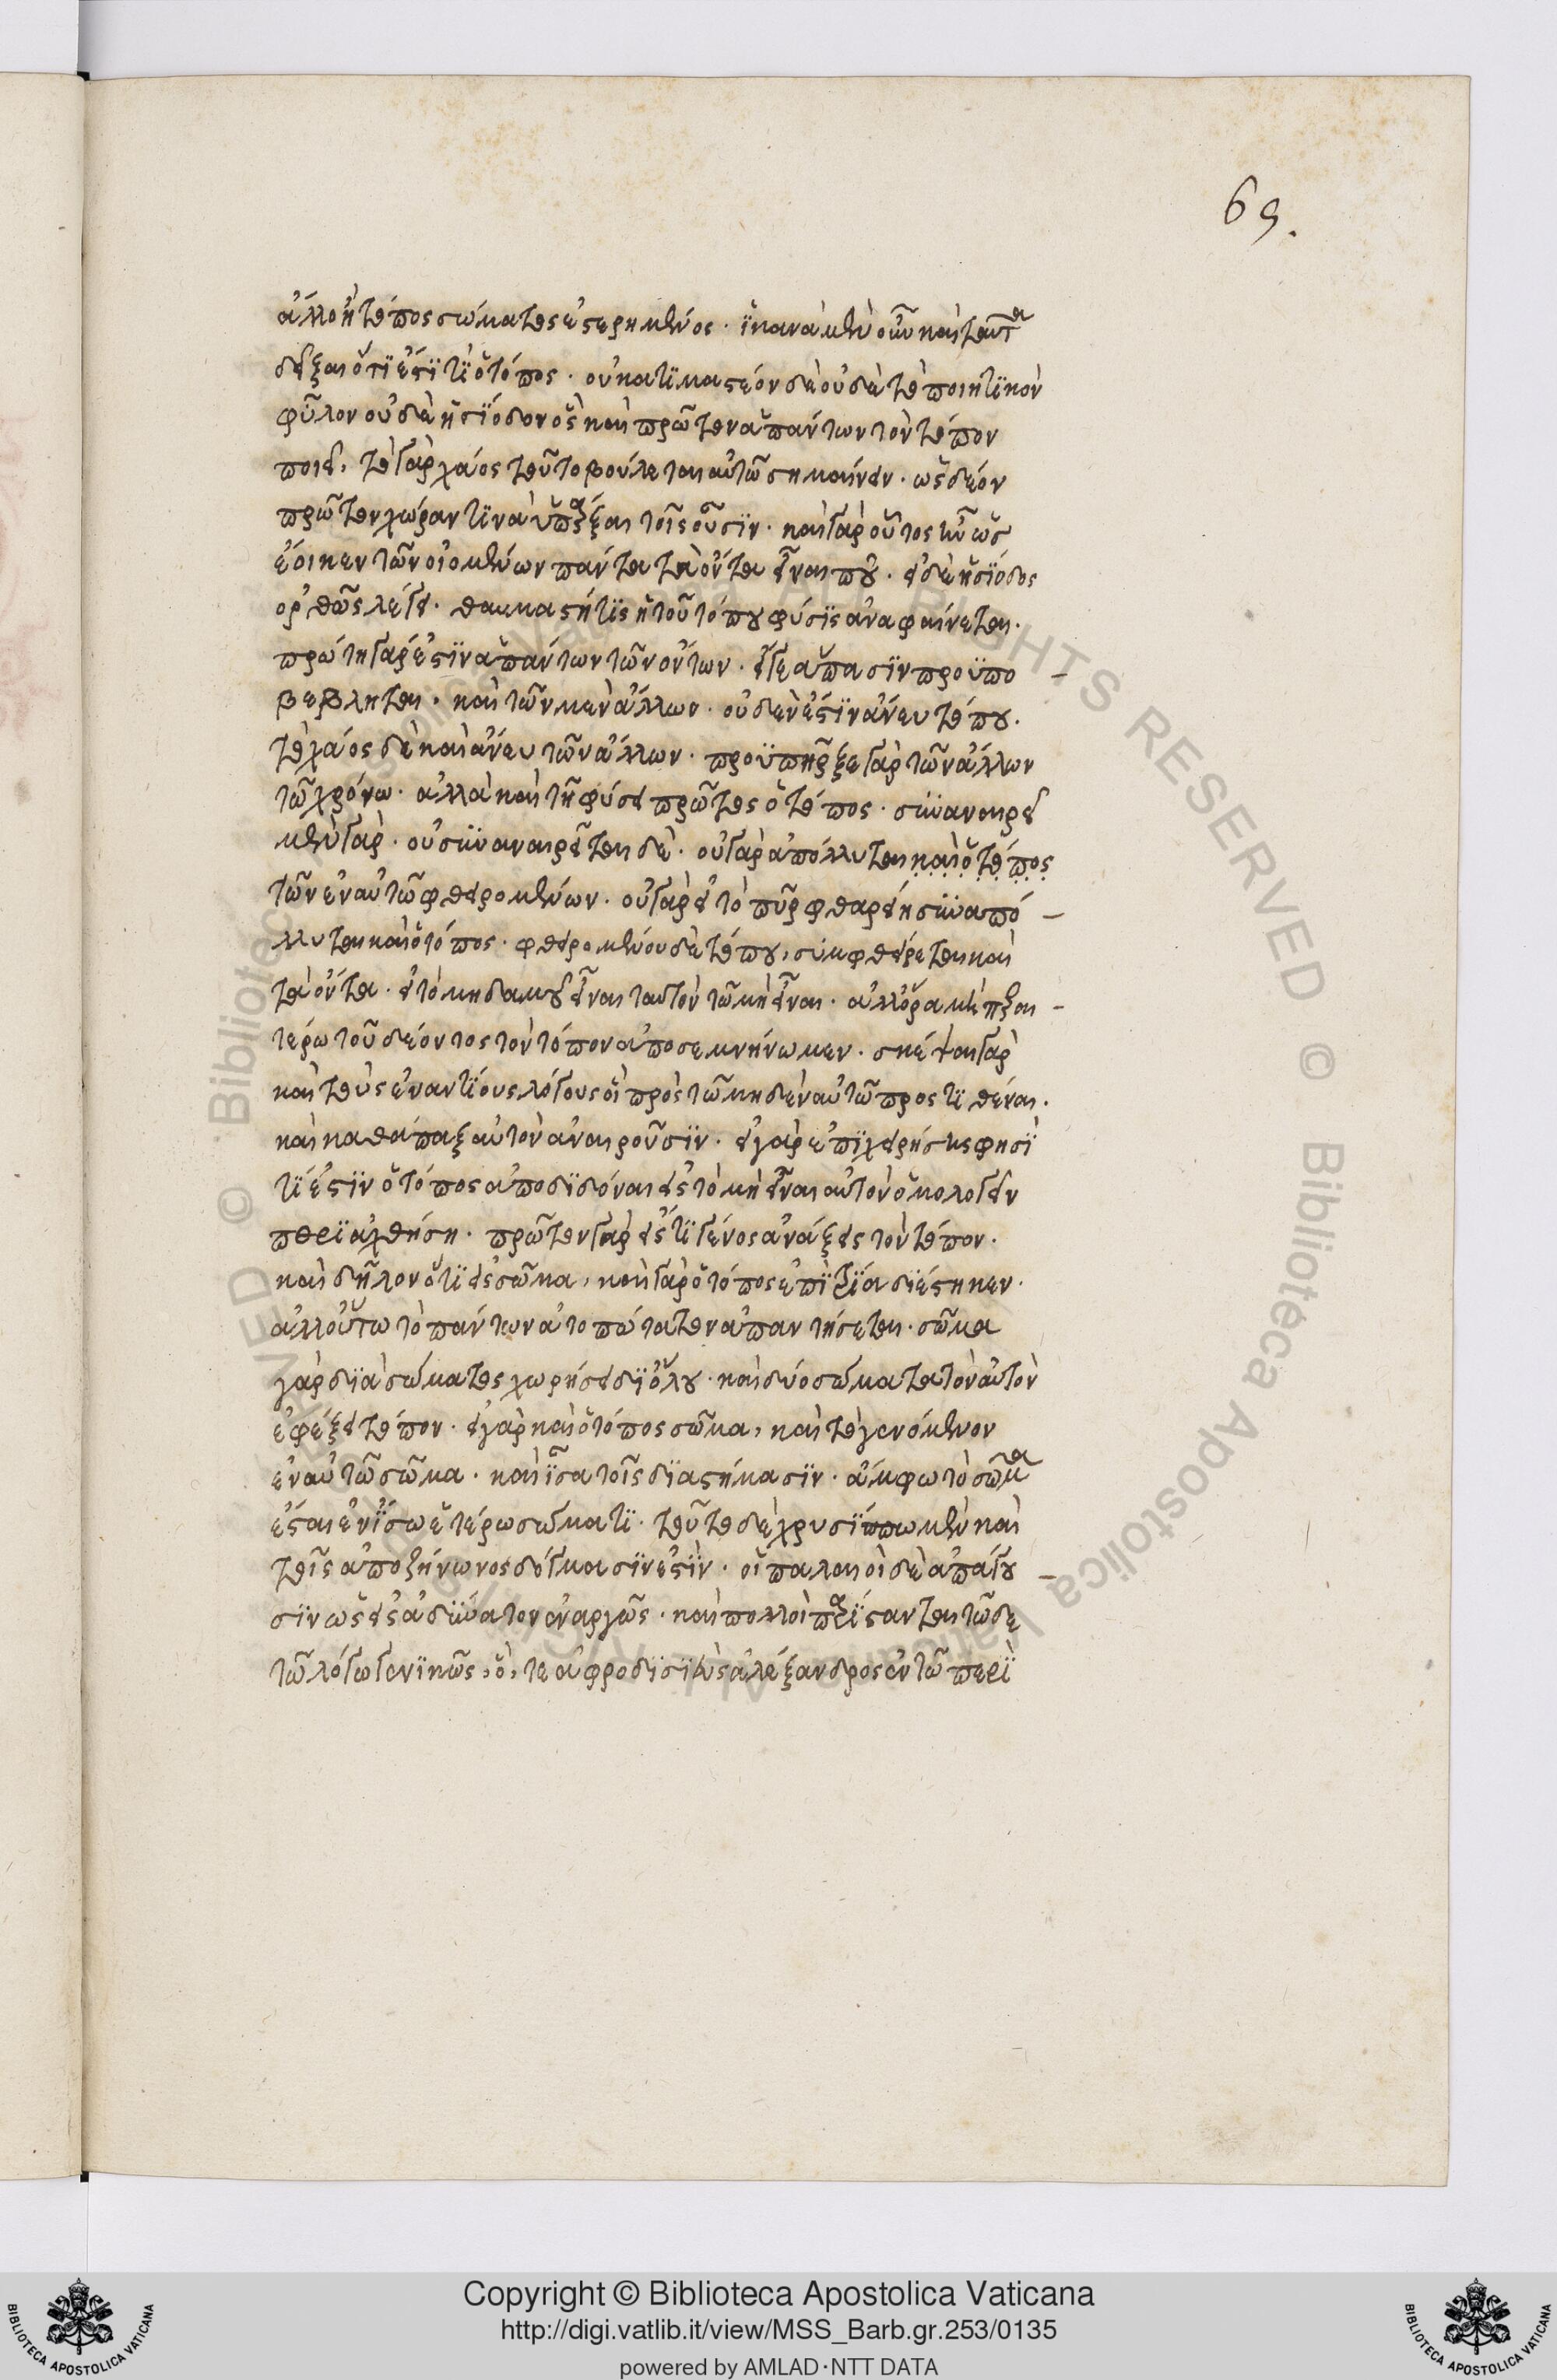 69.
ἀλλ' ὁ τόπος σώματος ἐστερημένος. ἱκανὰ μὲν οὖν καὶ ταῦτα
δεῖξαι ὅτι ἐστί τι ὁ τόπος. οὐκ ἀτιμαστέον δὲ οὐδὲ τὸ ποιητικὸν
φῦλον οὐδὲ ἡσίοδον ὃς καὶ πρῶτον ἁπάντων τὸν τόπον
ποιεῖ, τὸ γὰρ χάος τοῦτο βούλεται αὐτῶ σημαίνειν. ὡς δέον
πρῶτον χώραν τινὰ ὑπάρξαι τοῖς οὖσιν. καὶ γὰρ οὗτος ἦν ὡς
ἔοικεν τῶν οἰομένων πάντα τὰ ὄντα εἶναι που. εἰ δὲ ἡσίοδος
ὀρθῶς λέγει. θαυμαστή τις ἡ τοῦ τόπου φύσις ἀναφαίνεται.
πρώτη γάρ ἐστιν ἁπάντων τῶν ὄντων. εἴγε ἅπασιν προϋπο
βέβληται. καὶ τῶν μὲν ἄλλων. οὐδέν ἐστιν ἄνευ τόπου.
τὸ χάος δὲ καὶ ἄνευ τῶν ἄλλων. προϋπῆρξε γὰρ τῶν ἄλλων
τῶ χρόνω. ἀλλὰ καὶ τῆ φύσει πρῶτος ὁ τόπος. συναναιρεῖ
μὲν γάρ. οὐ συναναιρεῖται δέ. οὐ γὰρ ἀπόλλυται καὶ ὁ τόπος
τῶν ἐν αὐτῶ φθειρομένων. οὐ γὰρ εἰ τὸ πῦρ φθαρείη συναπό
λλυται καὶ ὁ τόπος. φθειρομένου δὲ τόπου, συμφθείρεται καὶ
τὰ ὄντα. εἰ τὸ μηδαμοῦ εἶναι ταυτὸν τῶ μὴ εἶναι. ἀλλ' ὅρα μὴ περαι
τέρω τοῦ δέοντος τὸν τόπον ἀποσεμνήνωμεν. σκέψαι γὰρ
καὶ τοὺς ἐναντίους λόγους οἳ πρὸς τῶ μηδὲν αὐτῶ προστιθέναι.
καὶ καθάπαξ αὐτὸν ἀναιροῦσιν. εἰ γὰρ ἐπιχειρήσεις φησὶ
τί ἐστιν ὁ τόπος ἀποδιδόναι εἰς τὸ μὴ εἶναι αὐτὸν ὁμολογεῖν
περιαχθήση. πρῶτον γὰρ εἰς τί γένος ἀνάξεις τὸν τόπον.
καὶ δῆλον ὅτι εἰς σῶμα, καὶ γὰρ ὁ τόπος ἐπὶ τρία διέστηκεν.
ἀλλ' οὕτω τὸ πάντων ἀτοπώτατον ἀπαντήσεται. σῶμα
γὰρ διὰ σώματος χωρήσει δι' ὅλου. καὶ δύο σώματα τὸν αὐτὸν
ἐφέξει τόπον. εἰ γὰρ καὶ ὁ τόπος σῶμα, καὶ τὸ γενόμενον
ἐν αὐτῶ σῶμα. καὶ ἴσα τοῖς διαστήμασιν. ἄμφω τὸ σῶμα
ἔσται ἐν ἴσω ἑτέρω σώματι. τοῦτο δὲ χρυσίππω μὲν καὶ
τοῖς ἀπὸ ζήνωνος δόγμα σιν ἐστίν. οἱ παλαιοὶ δὲ ἀπάγου
σιν ὡς εἰς ἀδύνατον ἐναργῶς. καὶ πολλοὶ παρίστανται τῶδε
τῶ λόγω γενικῶς, ὅ, τε ἀφροδισιεὺς ἀλέξανδρος ἐν τῶ περὶ
Copyright © Biblioteca Apostolica Vaticana
http://digi.vatlib.it/view/MSS_Barb.gr.253/0135
powered by AMLAD·NTT DATA